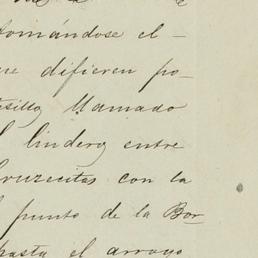 tomándose el
que difieren po-
llamado
lindero entre
Cruzecitas con la
punto de la Bor
hasta el arroyo